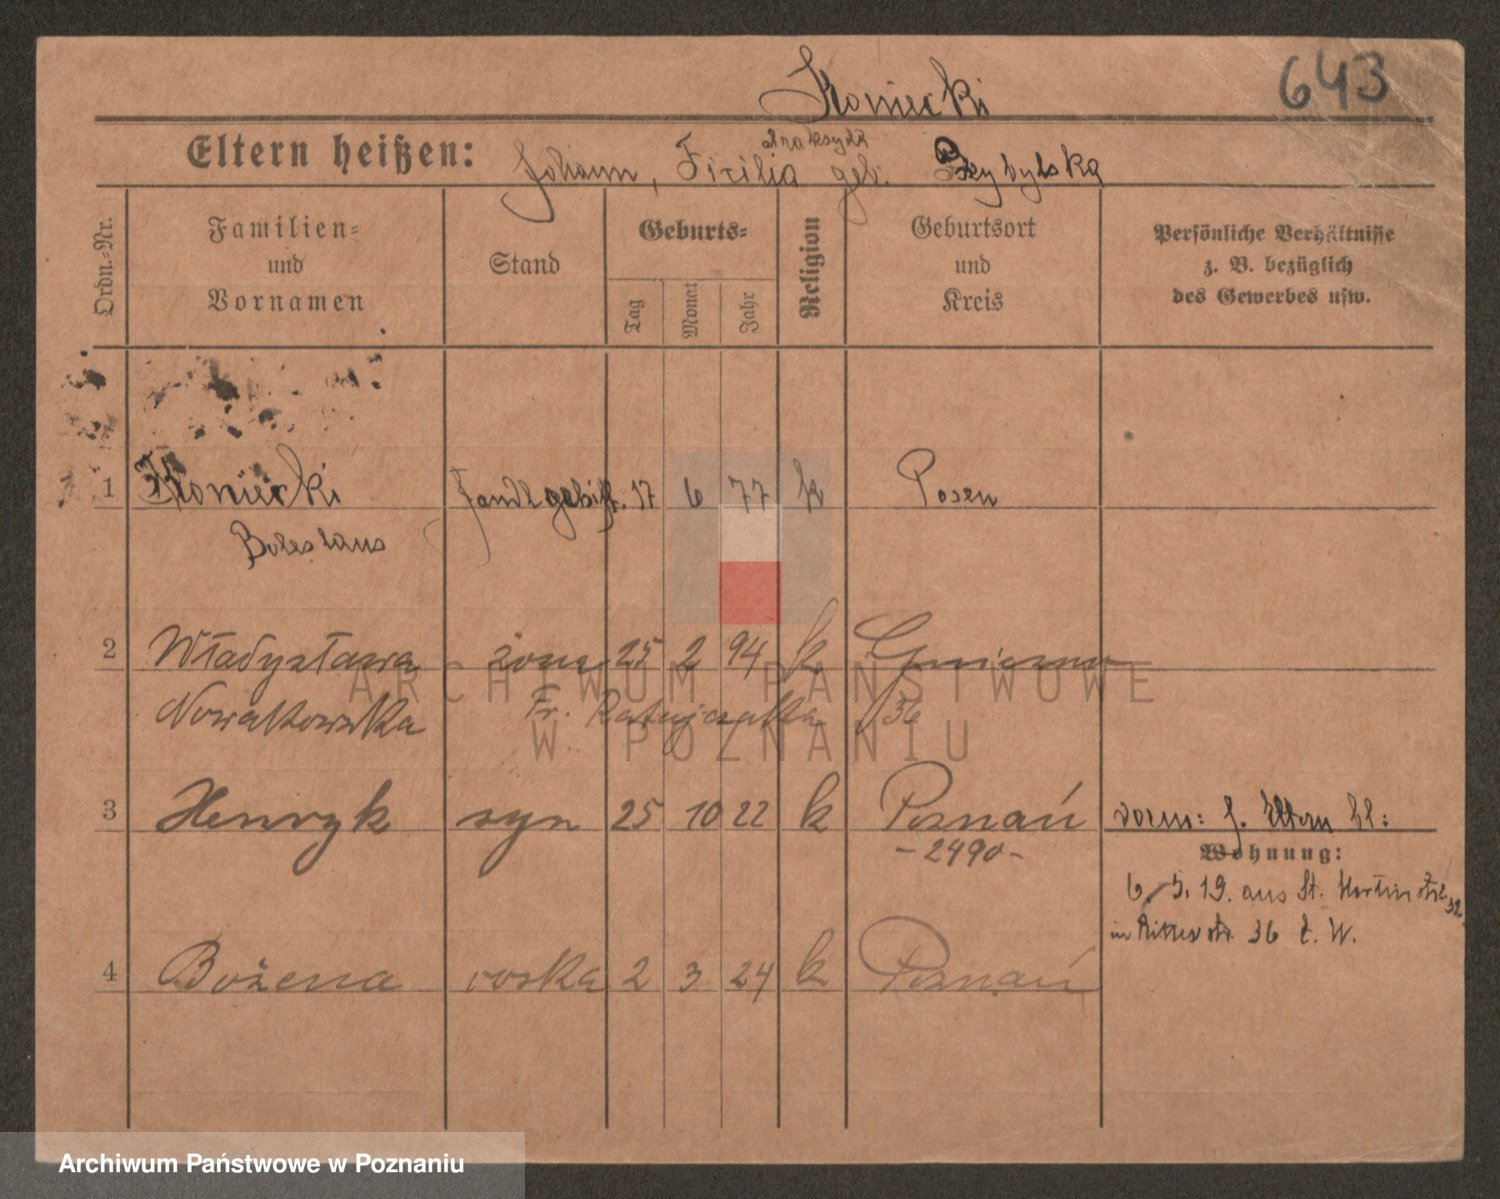 643
Koniecki
Eltern heißen: Johann, geb. Przybylska
Ordn.-Nr.
Familien- und Vornamen
Stand
Geburts-
Tag
Monat
Jahr
Religion
Geburtsort und Kreis
Persönliche Verhältnisse
z. B. bezüglich
des Gewerbes usw.
1 Koniecki 17 6 77 k Posen
Boleslaus
2 Władysława żona 25 2 94 k Gniezno
Nowakowska Fr. Ratajczaka 36
3 Henryk syn 25 10 22 k Poznań
-2490-
vorm: Eltern bl:
Wohnung:
6. 5. 19. aus St. Martinstr. 32
in Ritterstr. 36 t. W.
4 Bożena 2 3 24 k Poznań
ARCHIWUM PAŃSTWOWE
W POZNANIU
Archiwum Państwowe w Poznaniu